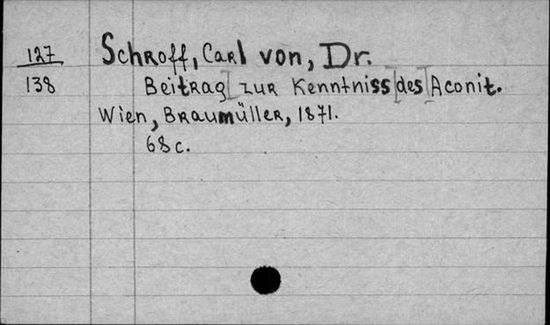 127 Schroff, Carl von, Dr.
138 Beitrag] zur Kenntniss [des] Aconit.
Wien, Braumüller, 1871.
68 c.